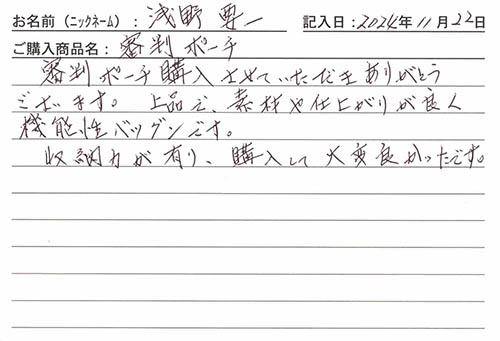 お名前（ニックネーム）：浅野 要一 記入日：2024年11月22日
ご購入商品名：審判ポーチ
審判ポーチ購入させていただきありがとう
ございます。上品で、素材や仕上がりが良く
機能性バツグンです。
収納力が有り、購入して大変良かったです。